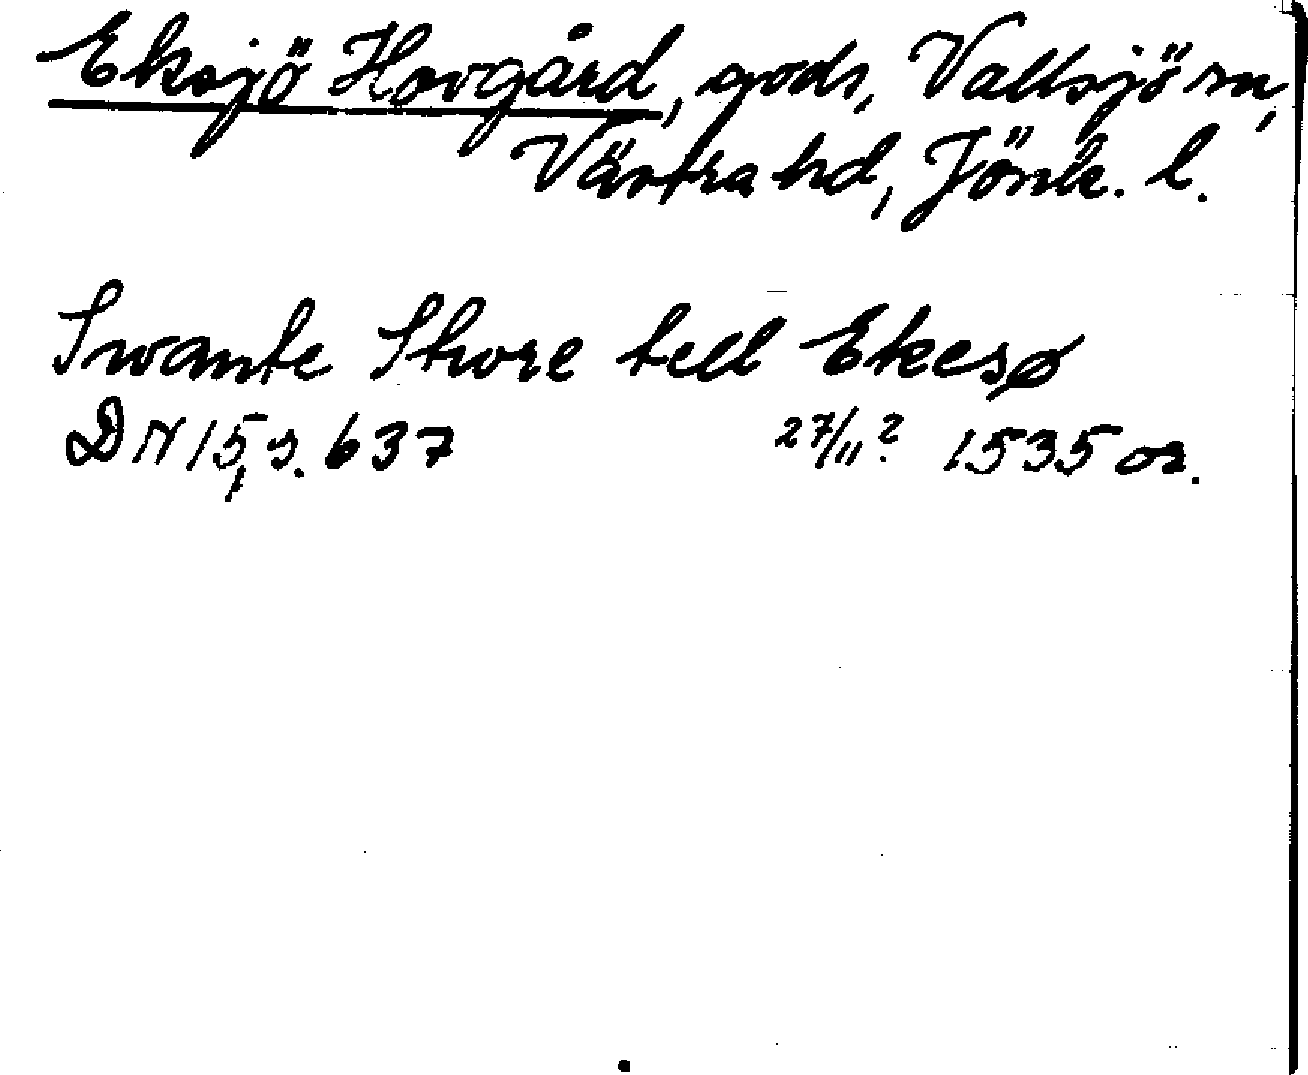 Eksjö Hovgård, gods, Vallsjö sn,
Västra hd, Jönk. l.
Swante Stwre tell Ekesø
DN 15, s. 637 27/11? 1535 or.